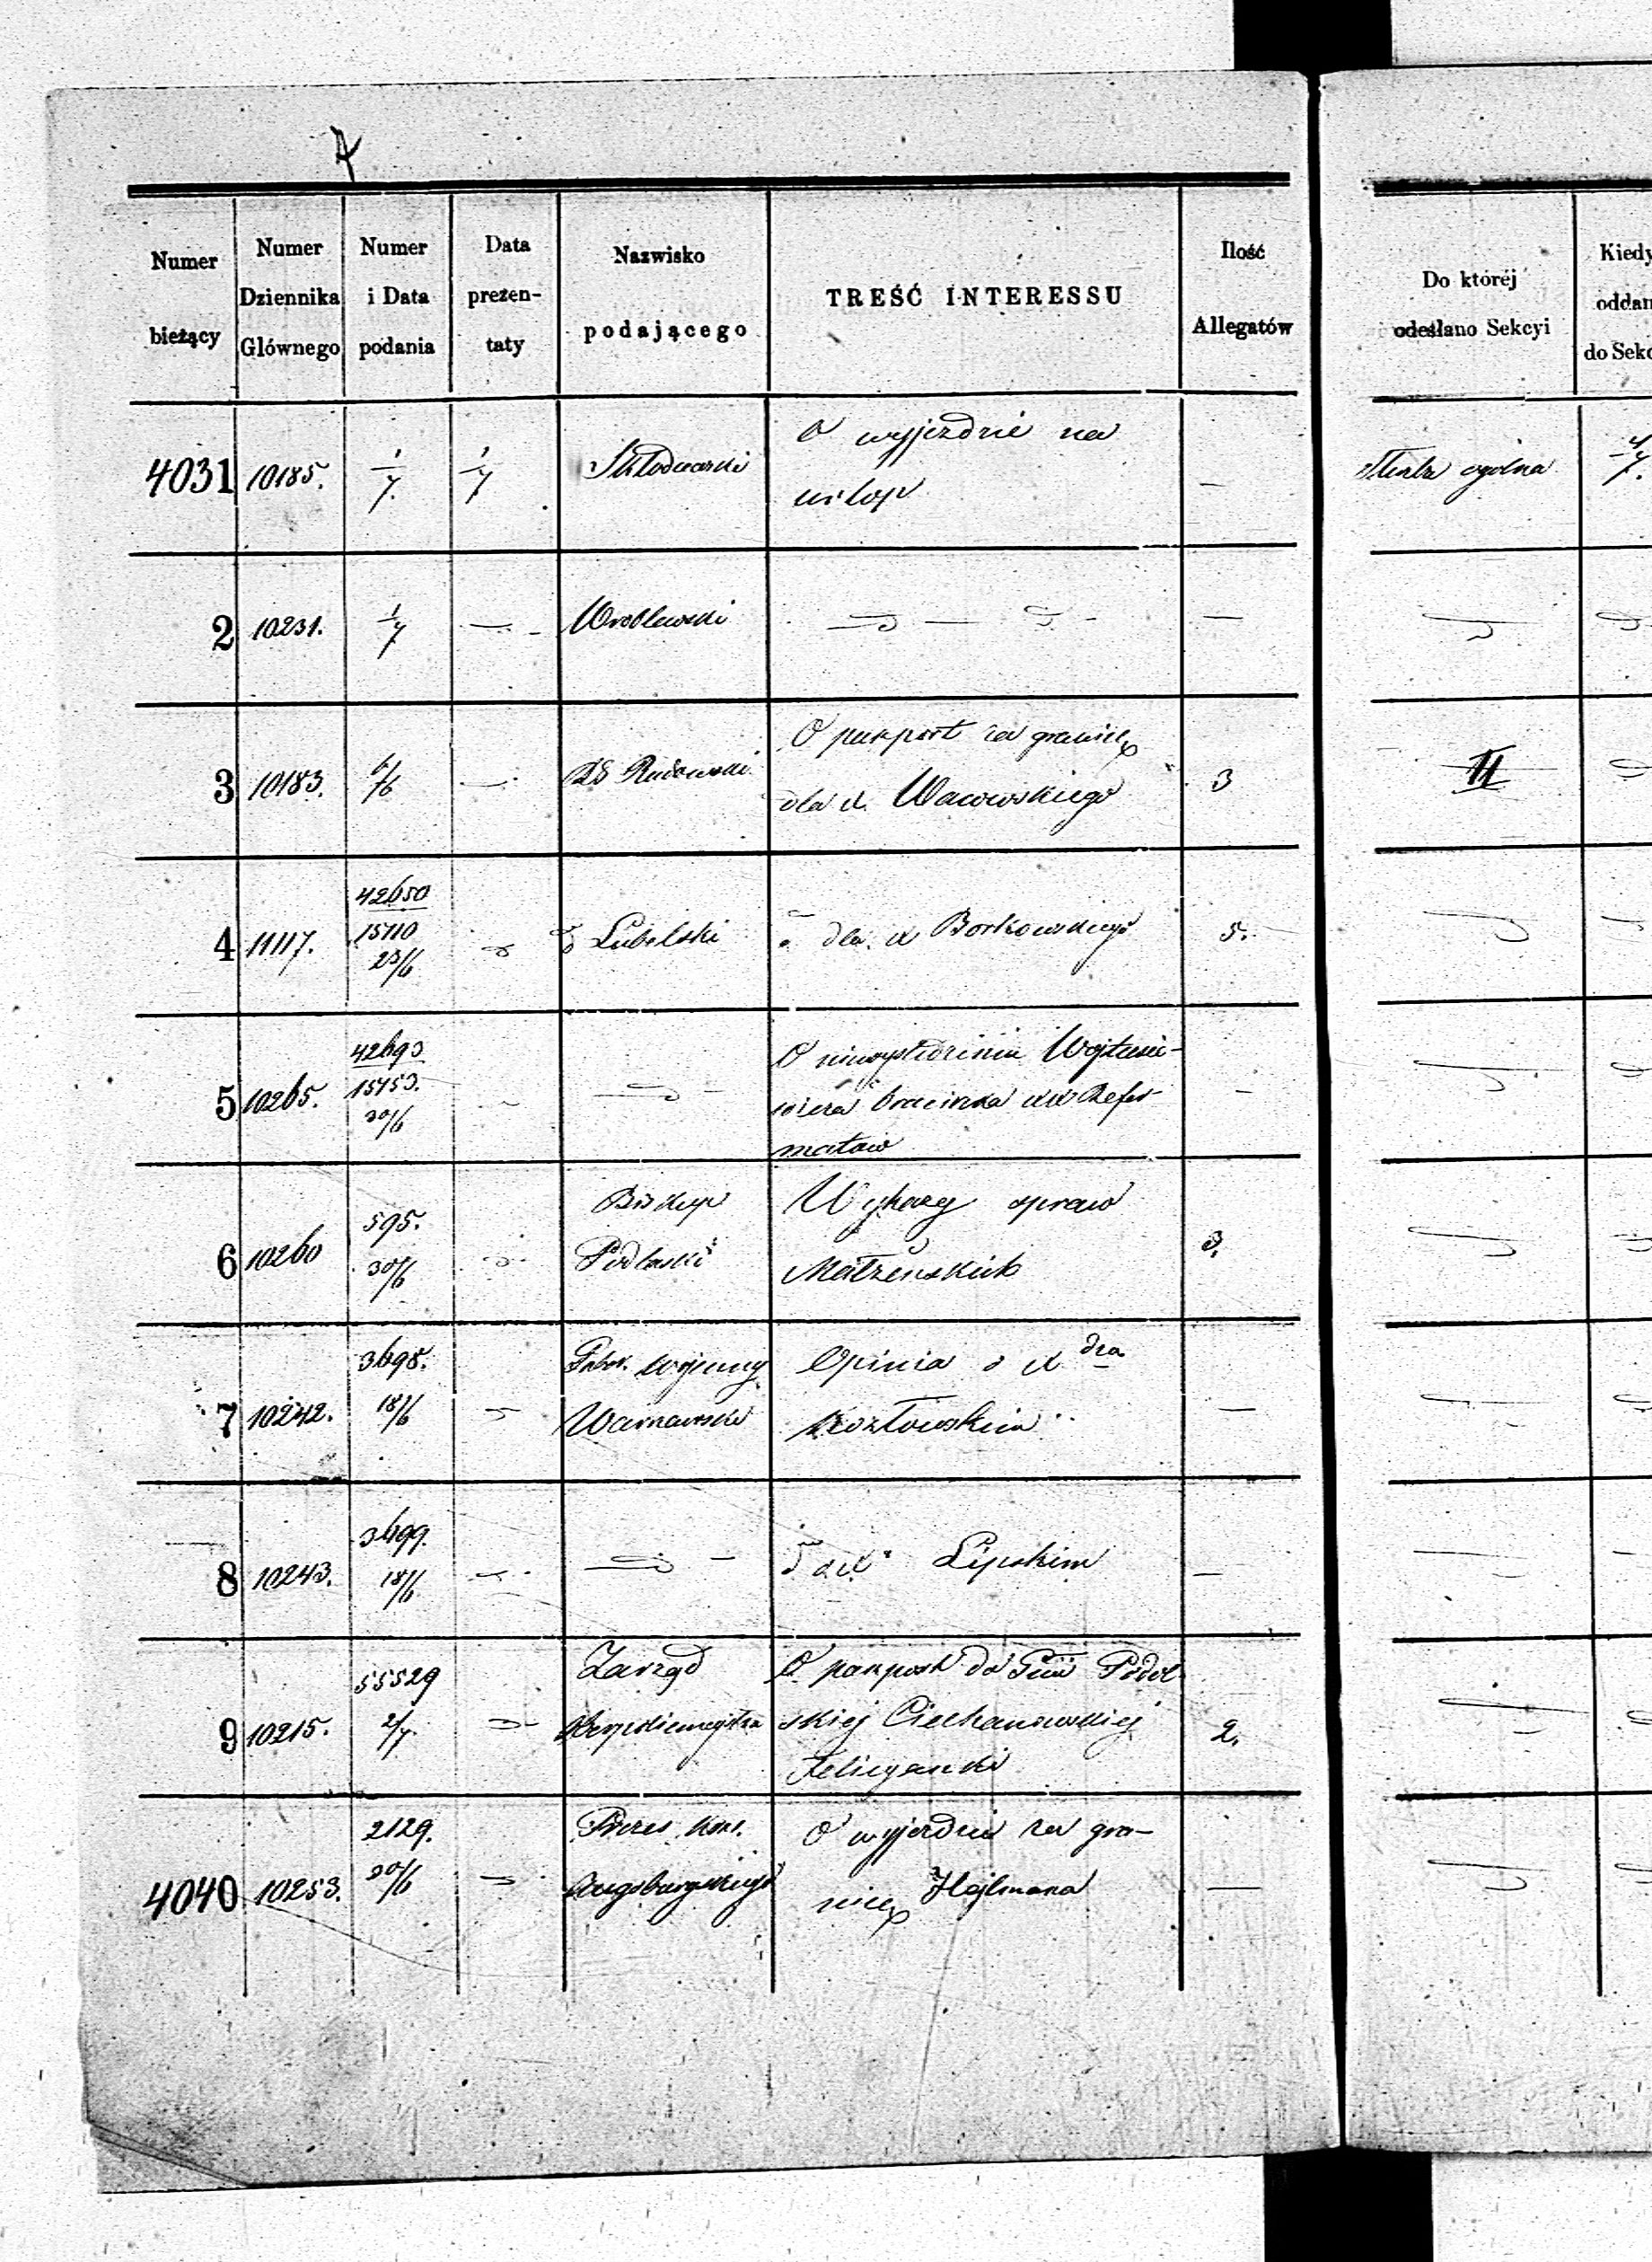 Numer bieżący | Numer Dziennika Głównego | Numer i Data podania | Data prezentaty | Nazwisko podającego | TREŚĆ INTERESSU | Ilość Allegatów | Do któréj odesłano Sekcyi | Kiedy oddan do Sekc
4031 | 10185. | 1/7. | 1/7 | Skłodowski | O wyjezdzie na
urlop | — | ogólna | 4/7.
2 | 10231. | 1/7 | — | Wroblewski | — | —
3 | 10183. | 6/6 | — | Radomski | O paszport za granicę
dla X. Wacowskiego | 3 | II
4 | 11117. | 42650
15710
23/6 | Lubelski | dla X Borkowskiego | 5.
5 | 10265. | 42693
15753.
30/6 | — | O Wojtusie-
wicza braciszka XX Refor-
matów | —
6 | 10260 | 595.
30/6 | Biskup
Podlaski | Wykazy spraw
Małżeńskich | 3.
7 | 10242. | 3698.
18/6 | Wojenny
Warszawski | Opinia o X dza
Kozłowskim | —
8 | 10243. | 3699.
18/6 | — | o X. Lipskim | —
9 | 10215. | 55529
2/7. | Zarząd
Oberpolicmajstra | O paszport do Gub Podol
skiej Ciechanowskiej
Felicyanki | 2.
4040 | 10253. | 2129.
30/6 | Prezes Kons.
Augsburgskiego | O wyjezdzie za gra-
nicę Hejlmana | —